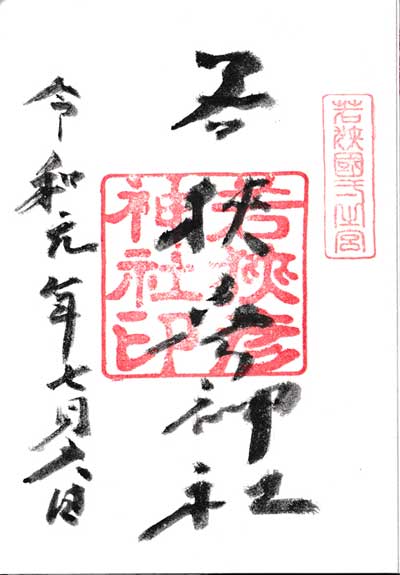 若狹國一之宮
若狭彦神社
若狹彦
神社印
令和元年七月六日